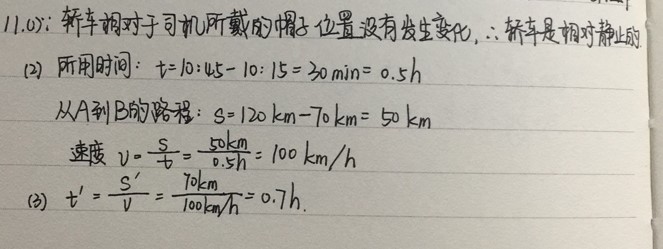 11.(1): 轿车相对于司机所戴的帽子位置没有发生变化,∴轿车是相对静止的.
(2) 所用时间: t=10:45-10:15=30min=0.5h
从A到B的路程: S=120km-70km=50km
速度 v=S/t=50km/0.5h=100km/h
(3) t'=S'/v=70km/100km/h=0.7h.